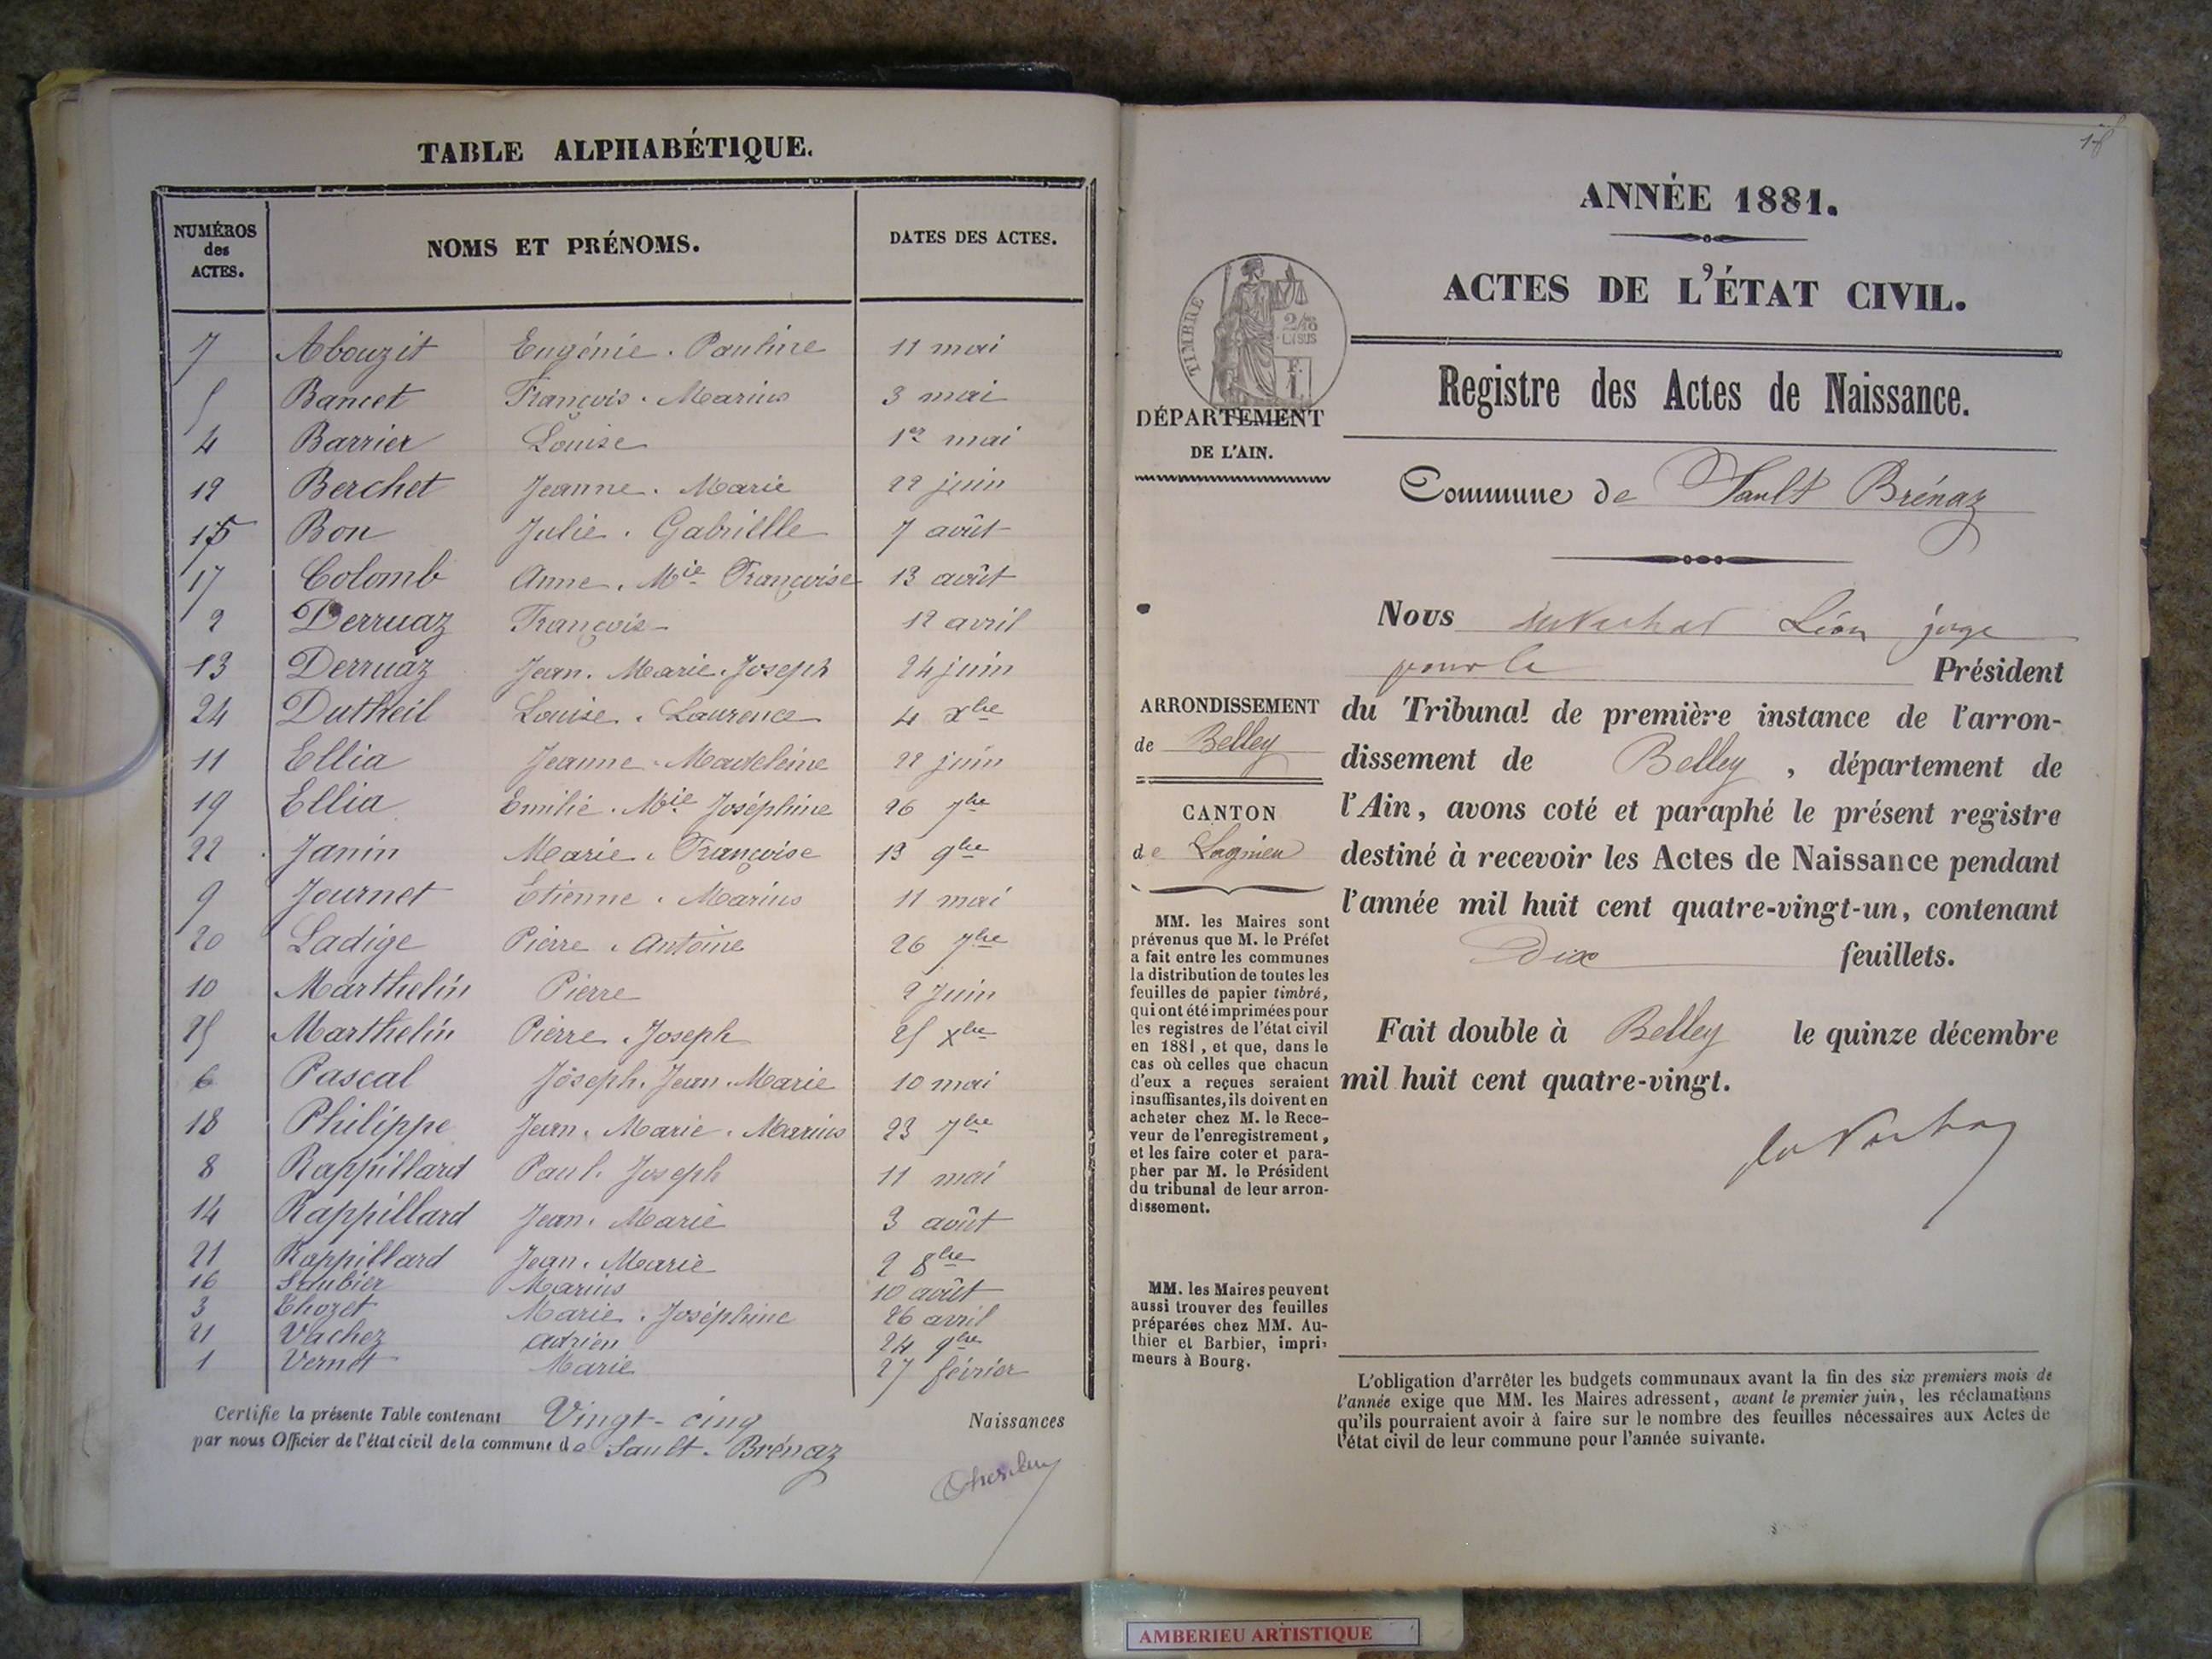 TABLE ALPHABÉTIQUE.
NUMÉROS des ACTES. NOMS ET PRÉNOMS. DATES DES ACTES.
7 Abouzit Eugénie. Pauline 11 mai
5 Bancet François. Marius 3 mai
4 Barrier Louise 1er mai
12 Berchet Jeanne. Marie 22 juin
15 Bon Julie. Gabrielle 7 août
17 Colomb Anne. Mie Françoise 13 août
2 Derruaz François 12 avril
13 Derruaz Jean. Marie. Joseph 24 juin
24 Dutheil Louise. Laurence 4 xbre
11 Ellia Jeanne. Madeleine 22 juin
19 Ellia Emilie. Mie Joséphine 26 7bre
22 Janin Marie. Françoise 13 9bre
9 Journet Etienne. Marius 11 mai
20 Ladige Pierre. Antoine 26 7bre
10 Marthelin Pierre 2 Juin
25 Marthelin Pierre. Joseph 25 xbre
6 Pascal Joseph. Jean. Marie 10 mai
18 Philippe Jean. Marie. Marius 23 7bre
8 Rappillard Paul. Joseph 11 mai
14 Rappillard Jean. Marie 3 août
21 Rappillard Jean. Marie 2 8bre
16 Saubier Marius 10 août
3 Thozet Marie. Joséphine 26 avril
21 Vachez Adrien 24 9bre
1 Vernet Marie 27 février
Certifie la présente Table contenant Vingt-cinq Naissances
par nous Officier de l'état civil de la commune de Sault-Brénaz
18
ANNÉE 1881.
ACTES DE L'ÉTAT CIVIL.
TIMBRE
2/10
EN SUS
F.
1.
Registre des Actes de Naissance.
DÉPARTEMENT
DE L'AIN.
Commune de Sault Brénaz
Nous Léon juge
pour le Président
ARRONDISSEMENT
de Belley
CANTON
de Lagnieu
du Tribunal de première instance de l'arron-
dissement de Belley, département de
l'Ain, avons coté et paraphé le présent registre
destiné à recevoir les Actes de Naissance pendant
l'année mil huit cent quatre-vingt-un, contenant
Dix feuillets.
Fait double à Belley le quinze décembre
mil huit cent quatre-vingt.
MM. les Maires sont
prévenus que M. le Préfet
a fait entre les communes
la distribution de toutes les
feuilles de papier timbré,
qui ont été imprimées pour
les registres de l'état civil
en 1881, et que, dans le
cas où celles que chacun
d'eux a reçues seraient
insuffisantes, ils doivent en
acheter chez M. le Rece-
veur de l'enregistrement,
et les faire coter et para-
pher par M. le Président
du tribunal de leur arron-
dissement.
MM. les Maires peuvent
aussi trouver des feuilles
préparées chez MM. Au-
thier et Barbier, impri-
meurs à Bourg.
L'obligation d'arrêter les budgets communaux avant la fin des six premiers mois de
l'année exige que MM. les Maires adressent, avant le premier juin, les réclamations
qu'ils pourraient avoir à faire sur le nombre des feuilles nécessaires aux Actes de
l'état civil de leur commune pour l'année suivante.
AMBERIEU ARTISTIQUE